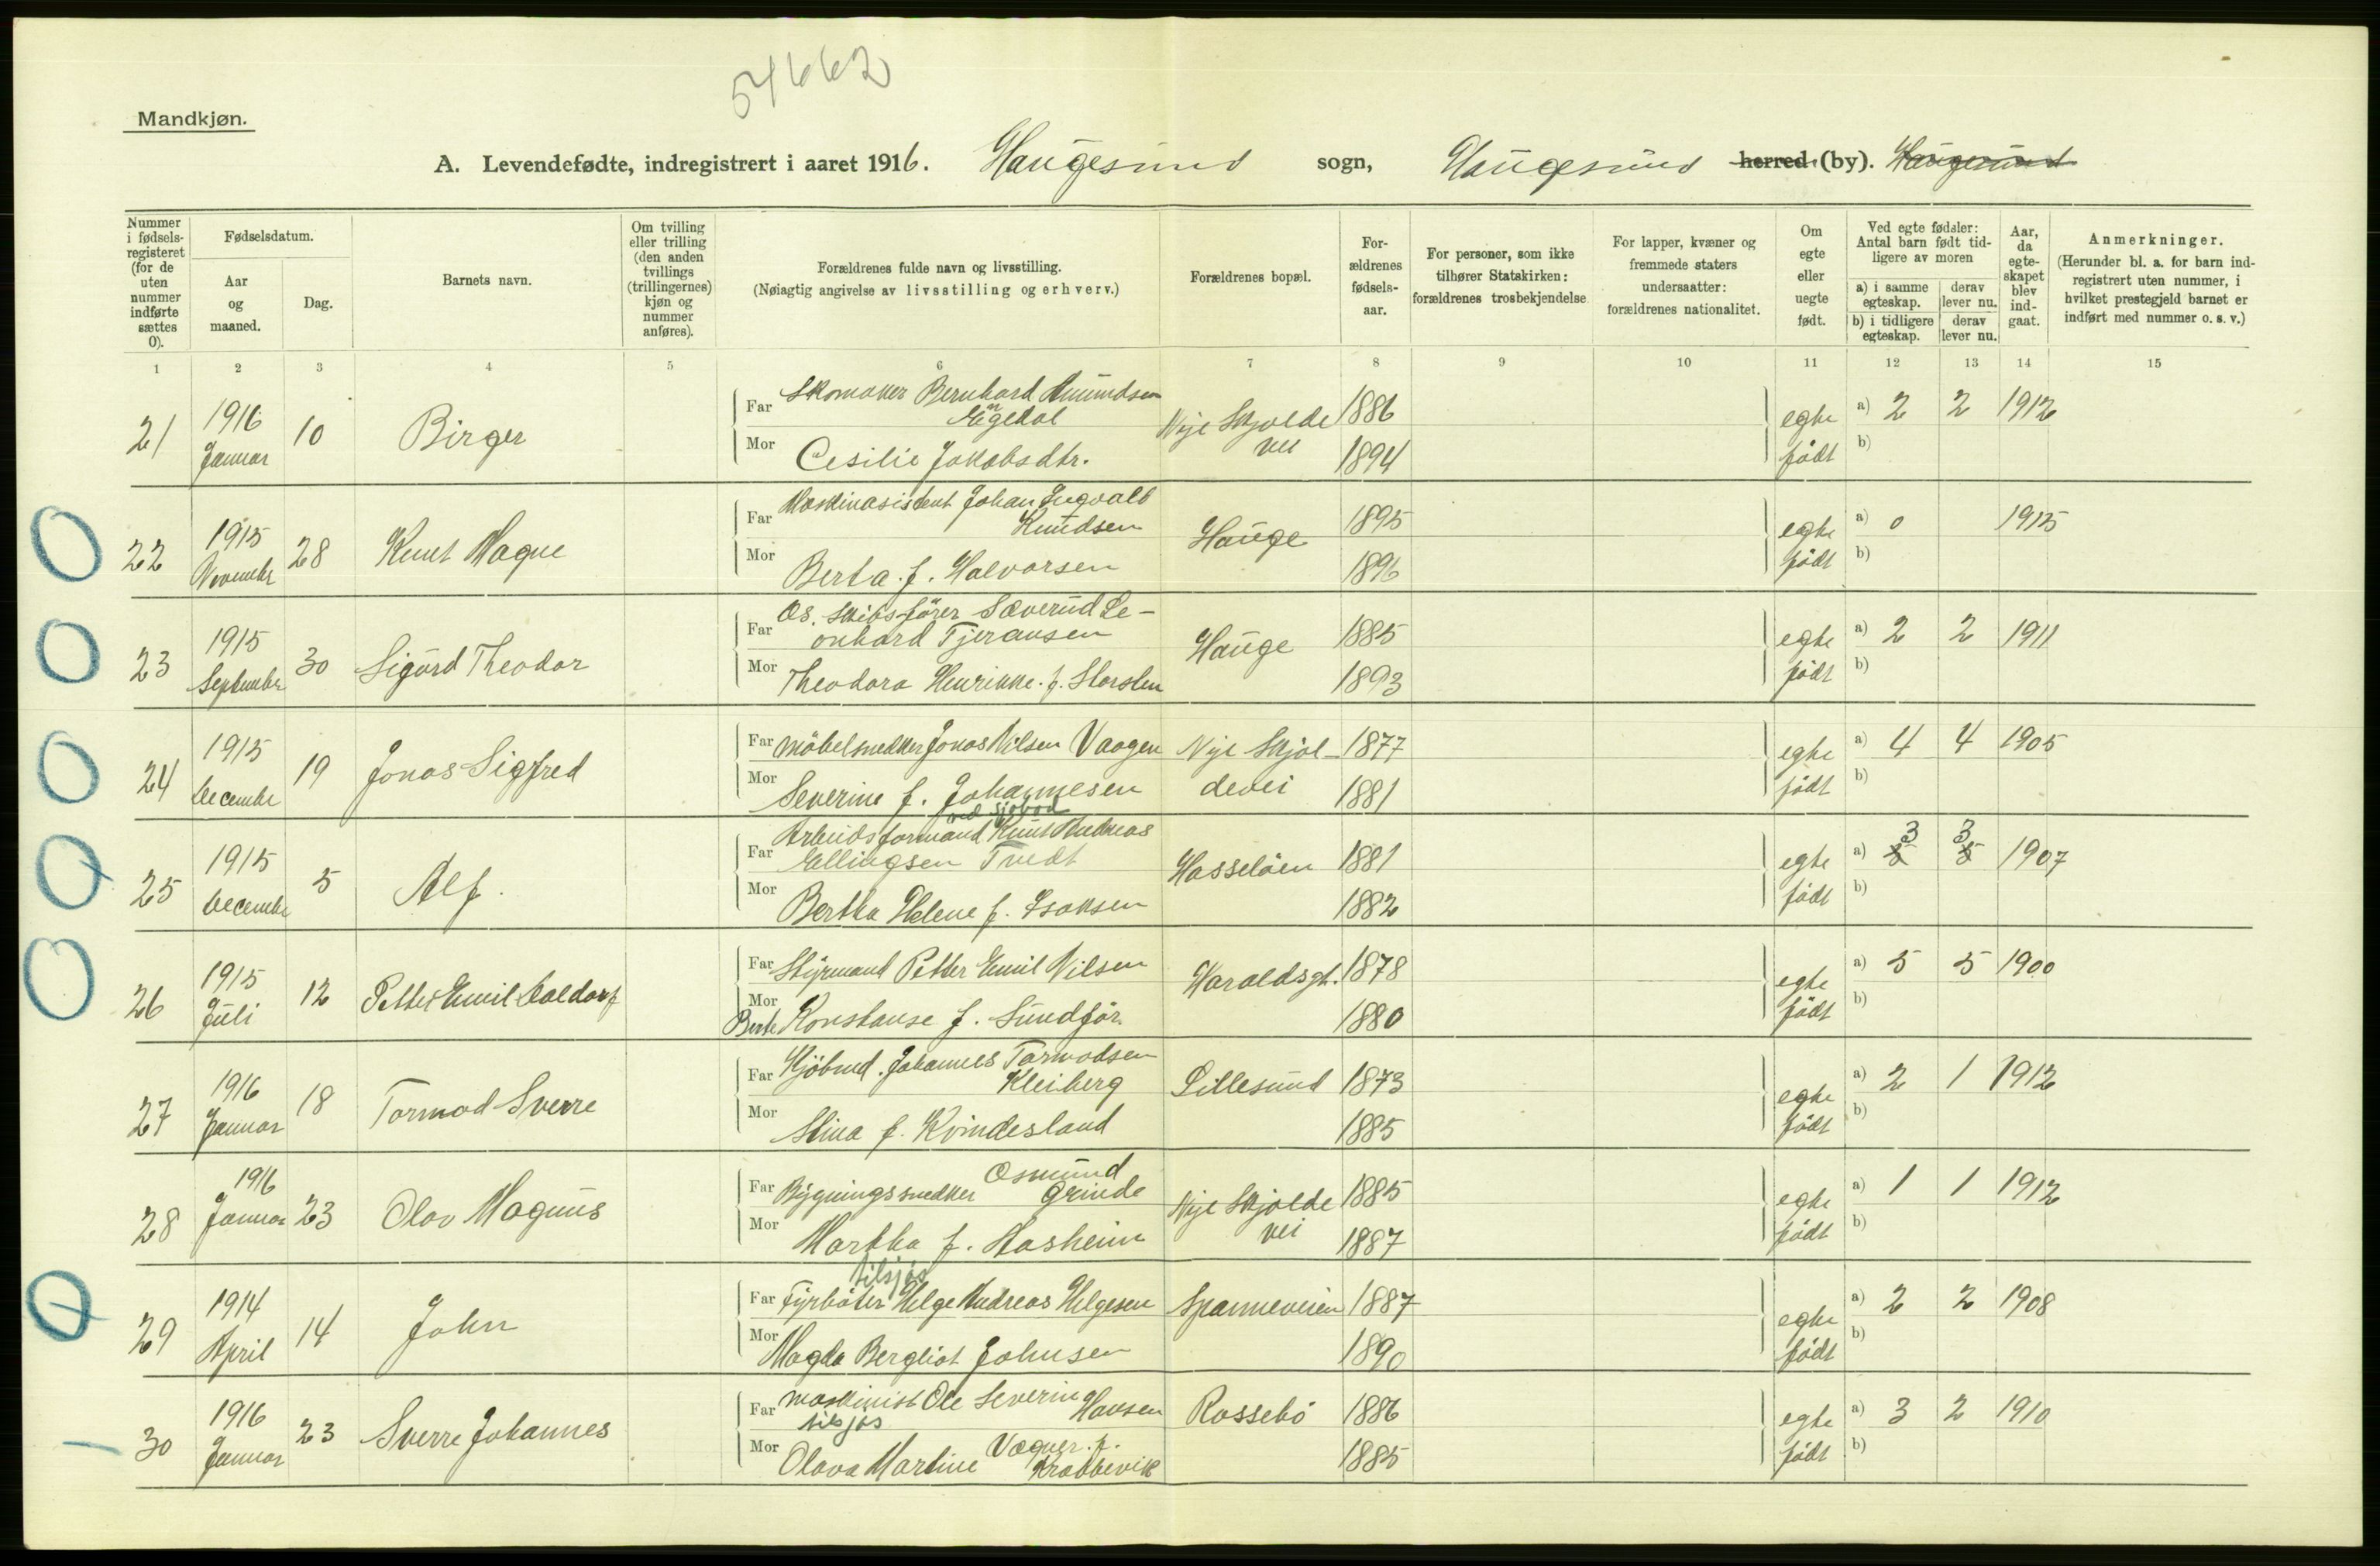 54662
Mandkjøn.
A. Levendefødte, indregistrert i aaret 1916. Haugesund sogn, Haugesund herred (by). Haugesund
Nummer i fødselsregisteret (for de uten nummer indførte sættes 0).
Fødselsdatum.
Aar og maaned.
Dag.
Barnets navn.
Om tvilling eller trilling (den anden tvillings (trillingernes) kjøn og nummer anføres).
Forældrenes fulde navn og livsstilling.
(Nøiagtig angivelse av livsstilling og erhverv.)
Forældrenes bopæl.
Forældrenes fødselsaar.
For personer, som ikke tilhører Statskirken: forældrenes trosbekjendelse
For lapper, kvæner og fremmede staters undersaatter: forældrenes nationalitet.
Om egte eller uegte født.
Ved egte fødsler: Antal barn født tidligere av moren
a) i samme egteskap. derav lever nu.
b) i tidligere egteskap. derav lever nu.
Aar, da egteskapet blev indgaat.
Anmerkninger.
(Herunder bl. a. for barn indregistrert uten nummer, i hvilket prestegjeld barnet er indført med nummer o. s. v.)
1 2 3 4 5 6 7 8 9 10 11 12 13 14 15
21 1916 Januar 10 Birger
Far Skomaker Bernhard Amundsen Egedal
Mor Cesilie Jakobsdtr.
Nye Skjolde vei 1886 1894 egte født a) 2 2 1912 b)
22 1915 November 28 Knut Magne
Far Maskinasistent Johan Ingvald Knudsen
Mor Berta f. Halvorsen
Hauge 1895 1896 egte født a) 0 1915 b)
23 1915 September 30 Sigurd Theodor
Far Os. Skibsfører Sæverud Leonhard Tjeransen
Mor Theodora Henrikke f. Storsten
Hauge 1885 1893 egte født a) 2 2 1911 b)
24 1915 December 19 Jonas Sigfred
Far Møbelsnedker Jonas Nilsen Vaagen
Mor Severine f. Johannesen
Nye Skjoldevei 1877 1881 egte født a) 4 4 1905 b)
25 1915 December 5 Alf.
Far Arbeidsformand ved sjøbod Knut Andreas Ellingsen Tvedt
Mor Bertha Helene f. Isaksen
Hasseløen 1881 1882 egte født a) 3 3 1907 b)
26 1915 Juli 12 Petter Emil Saldorf
Far Styrmand Petter Emil Nilsen
Mor Berte Konstanse f. Sundfør
Haraldsgt. 1878 1880 egte født a) 5 5 1900 b)
27 1916 Januar 18 Tormod Sverre
Far Kjøbmd. Johannes Tormodsen Kleiberg
Mor Stina f. Kvindesland
Lillesund 1873 1885 egte født a) 2 1 1912 b)
28 1916 Januar 23 Olav Magnus
Far Bygningssnedker Osmund Grinde
Mor Martha f. Aasheim
Nye Skjolde vei 1885 1887 egte født a) 1 1 1912 b)
29 1914 April 14 John
Far Fyrbøter tilsjøs Helge Andreas Helgesen
Mor Magda Bergliot Johnsen
Spanneveien 1887 1890 egte født a) 2 2 1908 b)
30 1916 Januar 23 Sverre Johannes
Far Maskinist tilsjøs Ole Severin Hansen
Mor Olava Martine Vagner f. Krabbevik
Rossebø 1886 1885 egte født a) 3 2 1910 b)